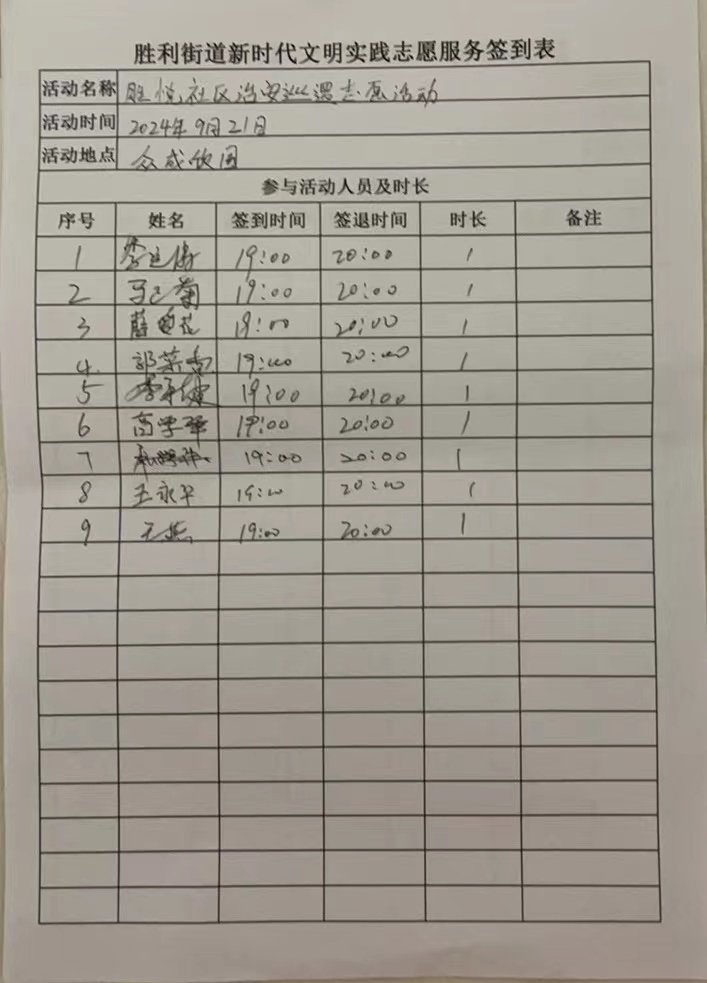 胜利街道新时代文明实践志愿服务签到表
活动名称 胜悦社区治安巡逻志愿活动
活动时间 2024年9月21日
活动地点 众成欣园
参与活动人员及时长
序号 姓名 签到时间 签退时间 时长 备注
1 19:00 20:00 1
2 19:00 20:00 1
3 19:00 20:00 1
4. 郭菜香 19:00 20:00 1
5 19:00 20:00 1
6 高学華 19:00 20:00 1
7 19:00 20:00 1
8 王永平 19:00 20:00 1
9 王燕 19:00 20:00 1